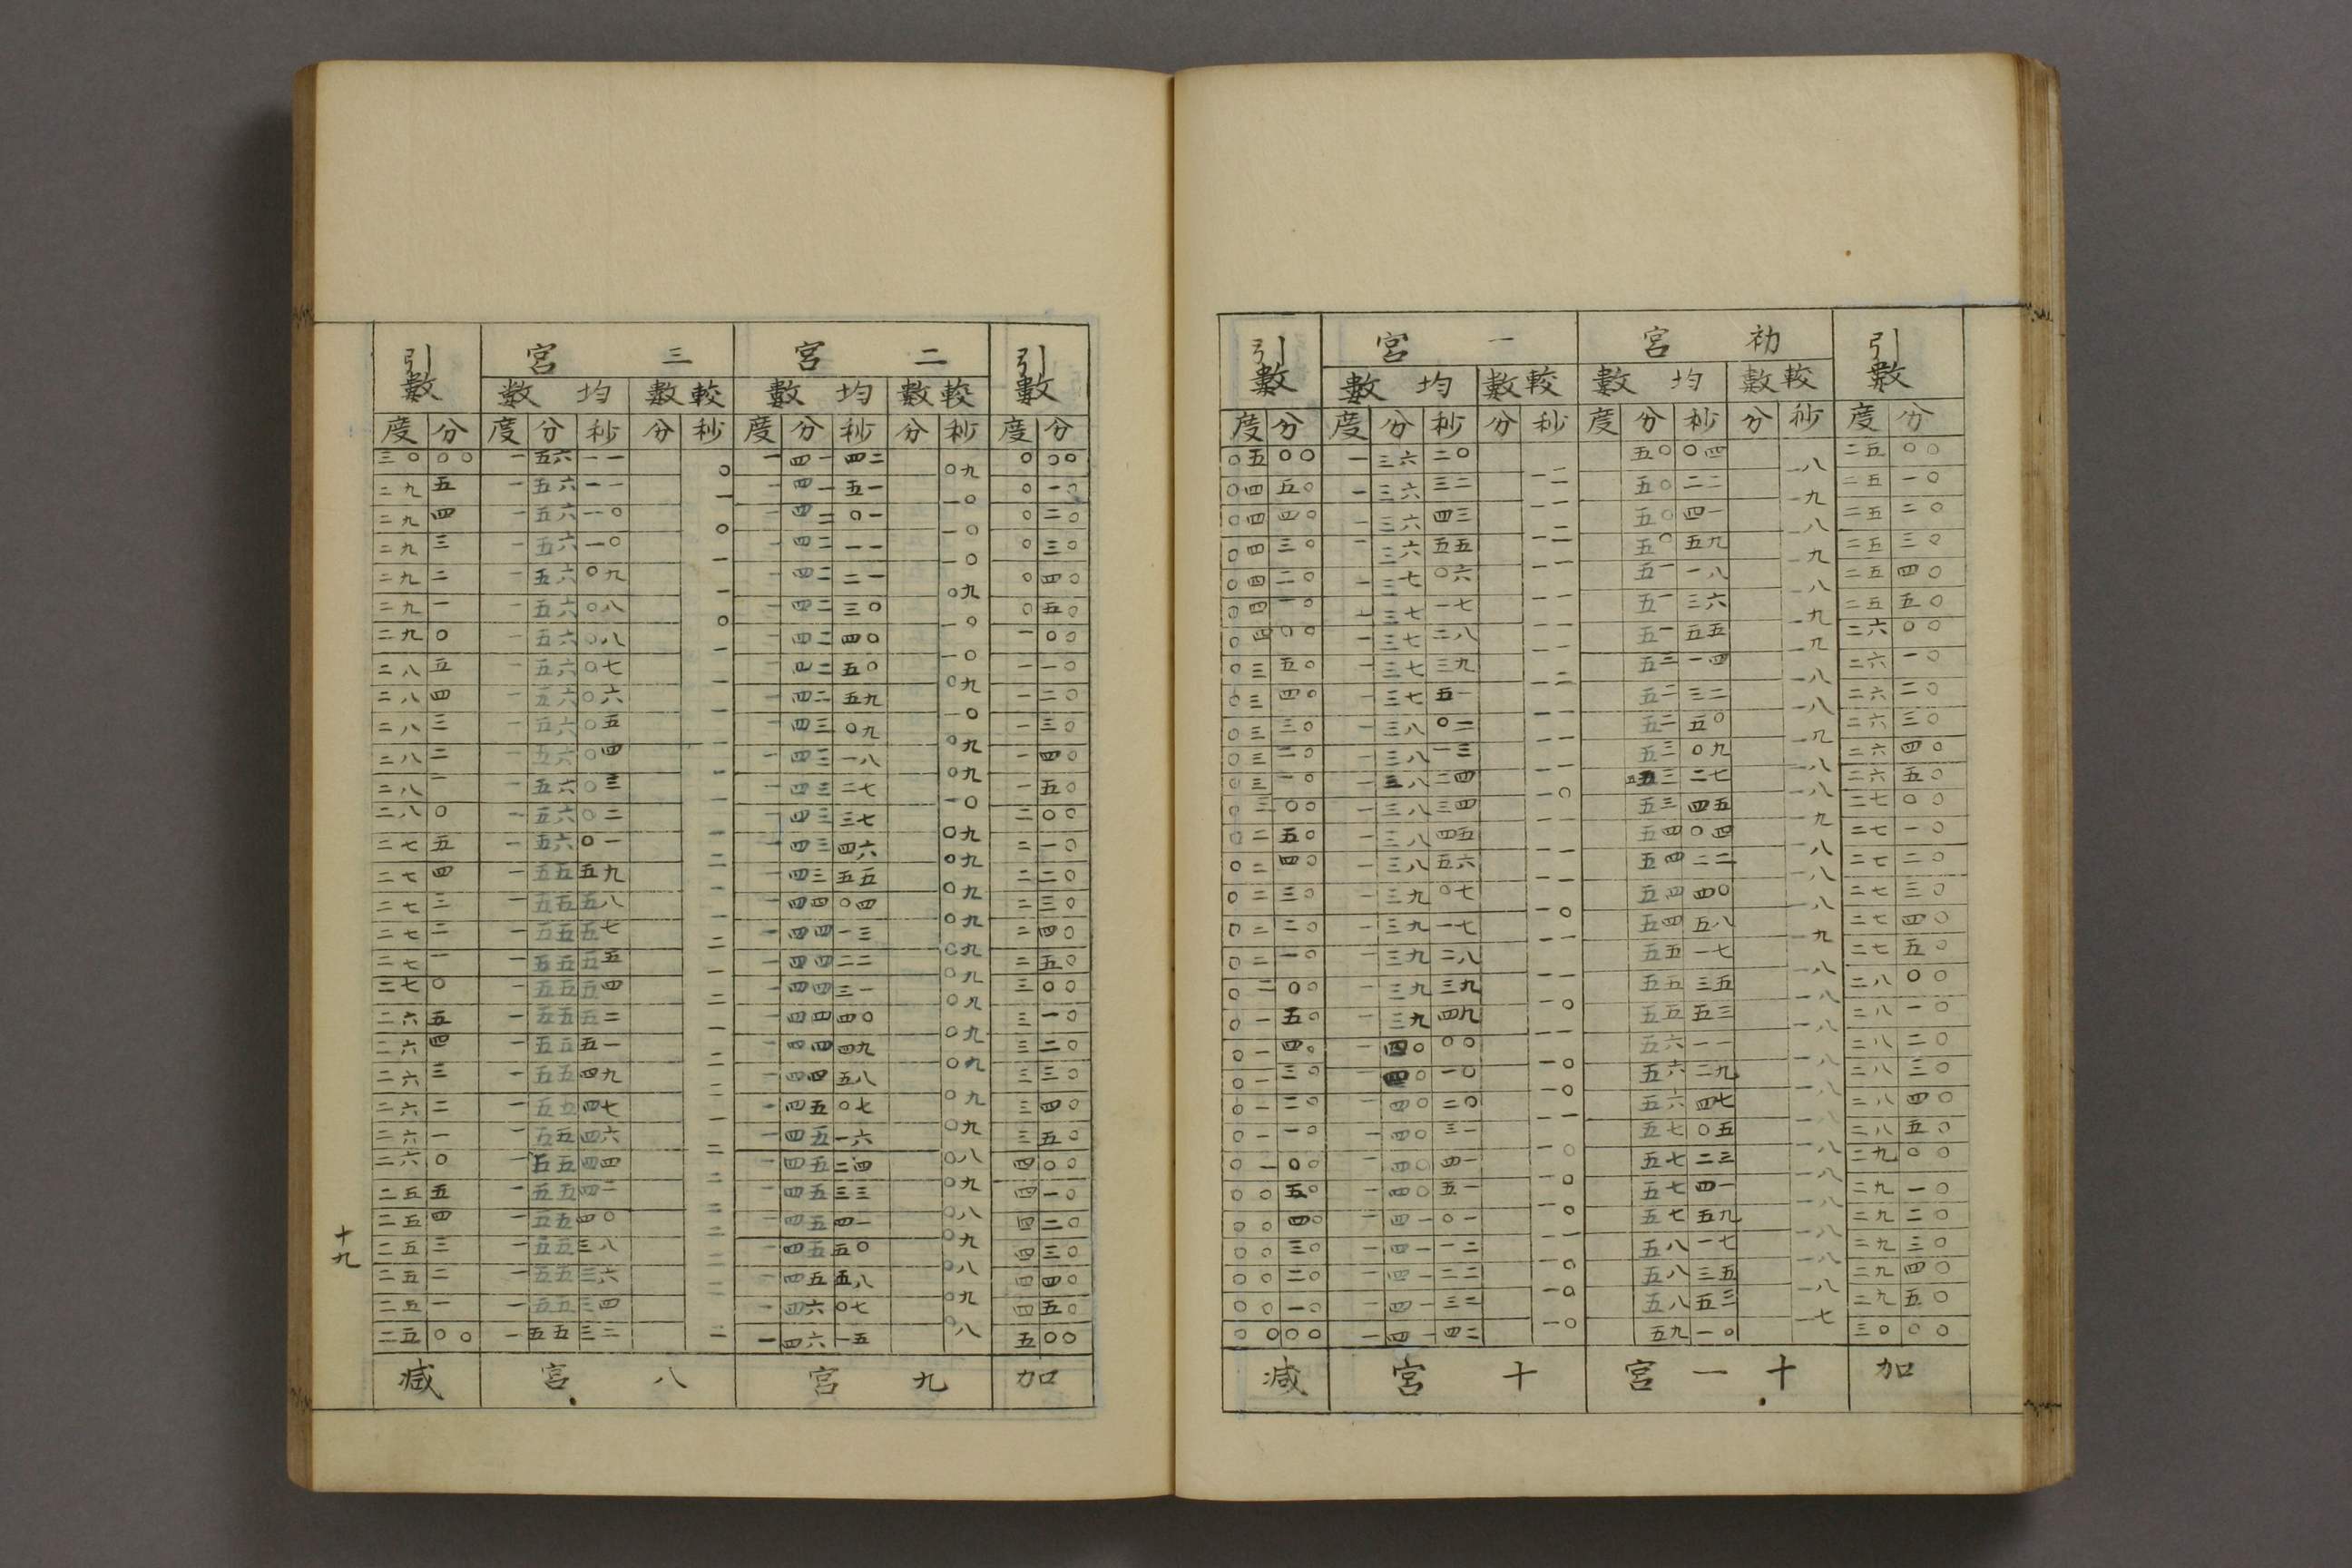 引數 初宮 一宮 引數
較數 均數 較數 均數
度 分 度 分 秒 分 秒 度 分 秒 分 秒 度 分
〇五 〇〇 一 三六 二〇 一二 五〇 〇四 一八 二五 〇〇
〇四 五〇 一 三六 三二 一一 五〇 二二 一九 二五 一〇
〇四 四〇 一 三六 四三 一二 五〇 四一 一八 二五 二〇
〇四 三〇 一 三六 五五 一一 五〇 五九 一九 二五 三〇
〇四 二〇 一 三七 〇六 一一 五一 一八 一八 二五 四〇
〇四 一〇 一 三七 一七 一一 五一 三六 一九 二五 五〇
〇四 〇〇 一 三七 二八 一一 五一 五五 一九 二六 〇〇
〇三 五〇 一 三七 三九 一二 五二 一四 一八 二六 一〇
〇三 四〇 一 三七 五一 一一 五二 三二 一八 二六 二〇
〇三 三〇 一 三八 〇二 一一 五二 五〇 一九 二六 三〇
〇三 二〇 一 三八 一三 一一 五三 〇九 一八 二六 四〇
〇三 一〇 一 三八 二四 一〇 五三 二七 一八 二六 五〇
〇三 〇〇 一 三八 三四 一一 五三 四五 一九 二七 〇〇
〇二 五〇 一 三八 四五 一一 五四 〇四 一八 二七 一〇
〇二 四〇 一 三八 五六 一一 五四 二二 一八 二七 二〇
〇二 三〇 一 三九 〇七 一〇 五四 四〇 一八 二七 三〇
〇二 二〇 一 三九 一七 一一 五四 五八 一九 二七 四〇
〇二 一〇 一 三九 二八 一一 五五 一七 一八 二七 五〇
〇二 〇〇 一 三九 三九 一〇 五五 三五 一八 二八 〇〇
〇一 五〇 一 三九 四九 一一 五五 五三 一八 二八 一〇
〇一 四〇 一 四〇 〇〇 一〇 五六 一一 一八 二八 二〇
〇一 三〇 一 四〇 一〇 一〇 五六 二九 一八 二八 三〇
〇一 二〇 一 四〇 二〇 一一 五六 四七 一八 二八 四〇
〇一 一〇 一 四〇 三一 一〇 五七 〇五 一八 二八 五〇
〇一 〇〇 一 四〇 四一 一〇 五七 二三 一八 二九 〇〇
〇〇 五〇 一 四〇 五一 一〇 五七 四一 一八 二九 一〇
〇〇 四〇 一 四一 〇一 一一 五七 五九 一八 二九 二〇
〇〇 三〇 一 四一 一二 一〇 五八 一七 一八 二九 三〇
〇〇 二〇 一 四一 二二 一〇 五八 三五 一八 二九 四〇
〇〇 一〇 一 四一 三二 一〇 五八 五三 一七 二九 五〇
〇〇 〇〇 一 四一 四二 五九 一〇 三〇 〇〇
加 十一宮 十宮 減
引數 二宮 三宮 引數
較數 均數 較數 均數
度 分 度 分 秒 分 秒 度 分 秒 分 秒 度 分
三〇 〇〇 一 五六 一一 〇 一 四一 四二 〇九 〇 〇〇
二九 五 一 五六 一一 一 一 四一 五一 一〇 〇 一〇
二九 四 一 五六 一〇 〇 一 四二 〇一 一〇 〇 二〇
二九 三 一 五六 一〇 一 一 四二 一一 一〇 〇 三〇
二九 二 一 五六 〇九 一 一 四二 二一 〇九 〇 四〇
二九 一 一 五六 〇八 〇 一 四二 三〇 一〇 〇 五〇
二九 〇 一 五六 〇八 一 一 四二 四〇 一〇 一 〇〇
二八 五 一 五六 〇七 一 一 四二 五〇 〇九 一 一〇
二八 四 一 五六 〇六 一 一 四二 五九 一〇 一 二〇
二八 三 一 五六 〇五 一 一 四三 〇九 〇九 一 三〇
二八 二 一 五六 〇四 一 一 四三 一八 〇九 一 四〇
二八 一 一 五六 〇三 一 一 四三 二七 一〇 一 五〇
二八 〇 一 五六 〇二 一 一 四三 三七 〇九 二 〇〇
二七 五 一 五六 〇一 二 一 四三 四六 〇九 二 一〇
二七 四 一 五五 五九 一 一 四三 五五 〇九 二 二〇
二七 三 一 五五 五八 一 一 四四 〇四 〇九 二 三〇
二七 二 一 五五 五七 二 一 四四 一三 〇九 二 四〇
二七 一 一 五五 五五 一 一 四四 二二 〇九 二 五〇
二七 〇 一 五五 五四 二 一 四四 三一 〇九 三 〇〇
二六 五 一 五五 五二 一 一 四四 四〇 〇九 三 一〇
二六 四 一 五五 五一 二 一 四四 四九 〇九 三 二〇
二六 三 一 五五 四九 二 一 四四 五八 〇九 三 三〇
二六 二 一 五五 四七 一 一 四五 〇七 〇九 三 四〇
二六 一 一 五五 四六 二 一 四五 一六 〇八 三 五〇
二六 〇 一 五五 四四 二 一 四五 二四 〇九 四 〇〇
二五 五 一 五五 四二 二 一 四五 三三 〇八 四 一〇
二五 四 一 五五 四〇 二 一 四五 四一 〇九 四 二〇
二五 三 一 五五 三八 二 一 四五 五〇 〇八 四 三〇
二五 二 一 五五 三六 二 一 四五 五八 〇九 四 四〇
二五 一 一 五五 三四 二 一 四六 〇七 〇八 四 五〇
二五 〇〇 一 五五 三二 一 四六 一五 五 〇〇
加 九宮 八宮 減
十九